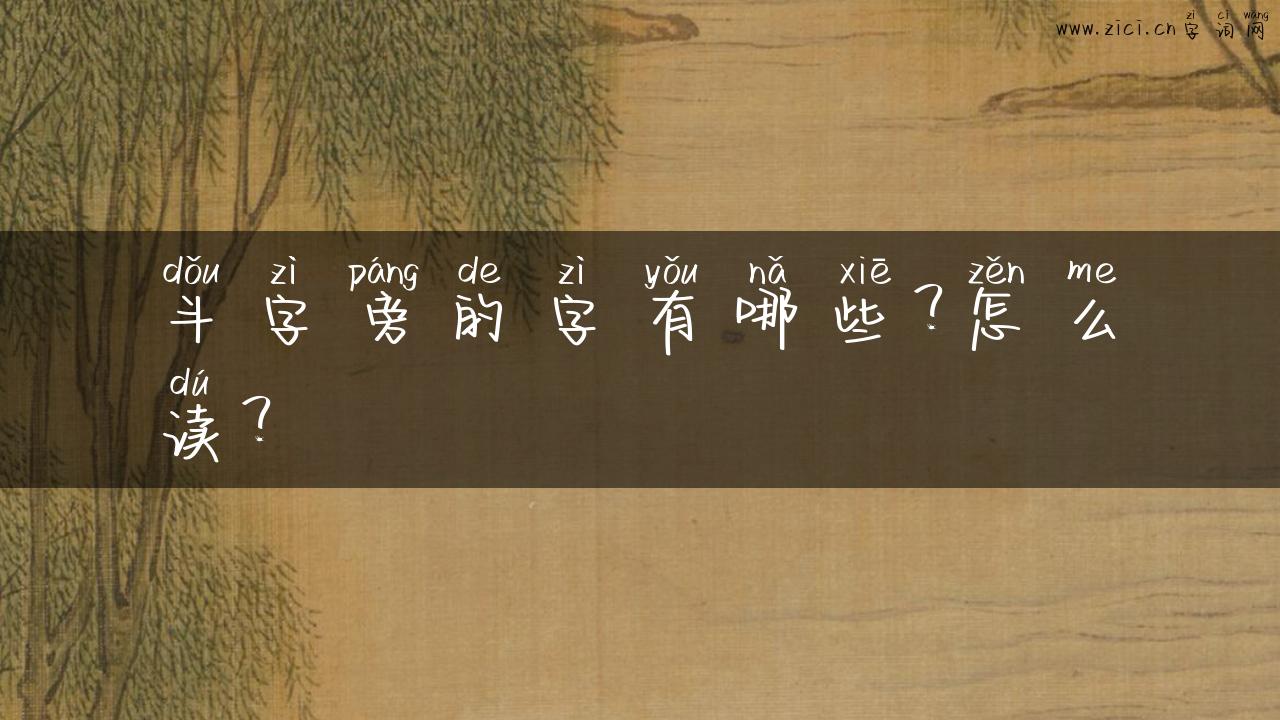 zì cí wǎng
www.zici.cn字词网
dǒu zì páng de zì yǒu nǎ xiē zěn me
斗字旁的字有哪些？怎么
dú
读？